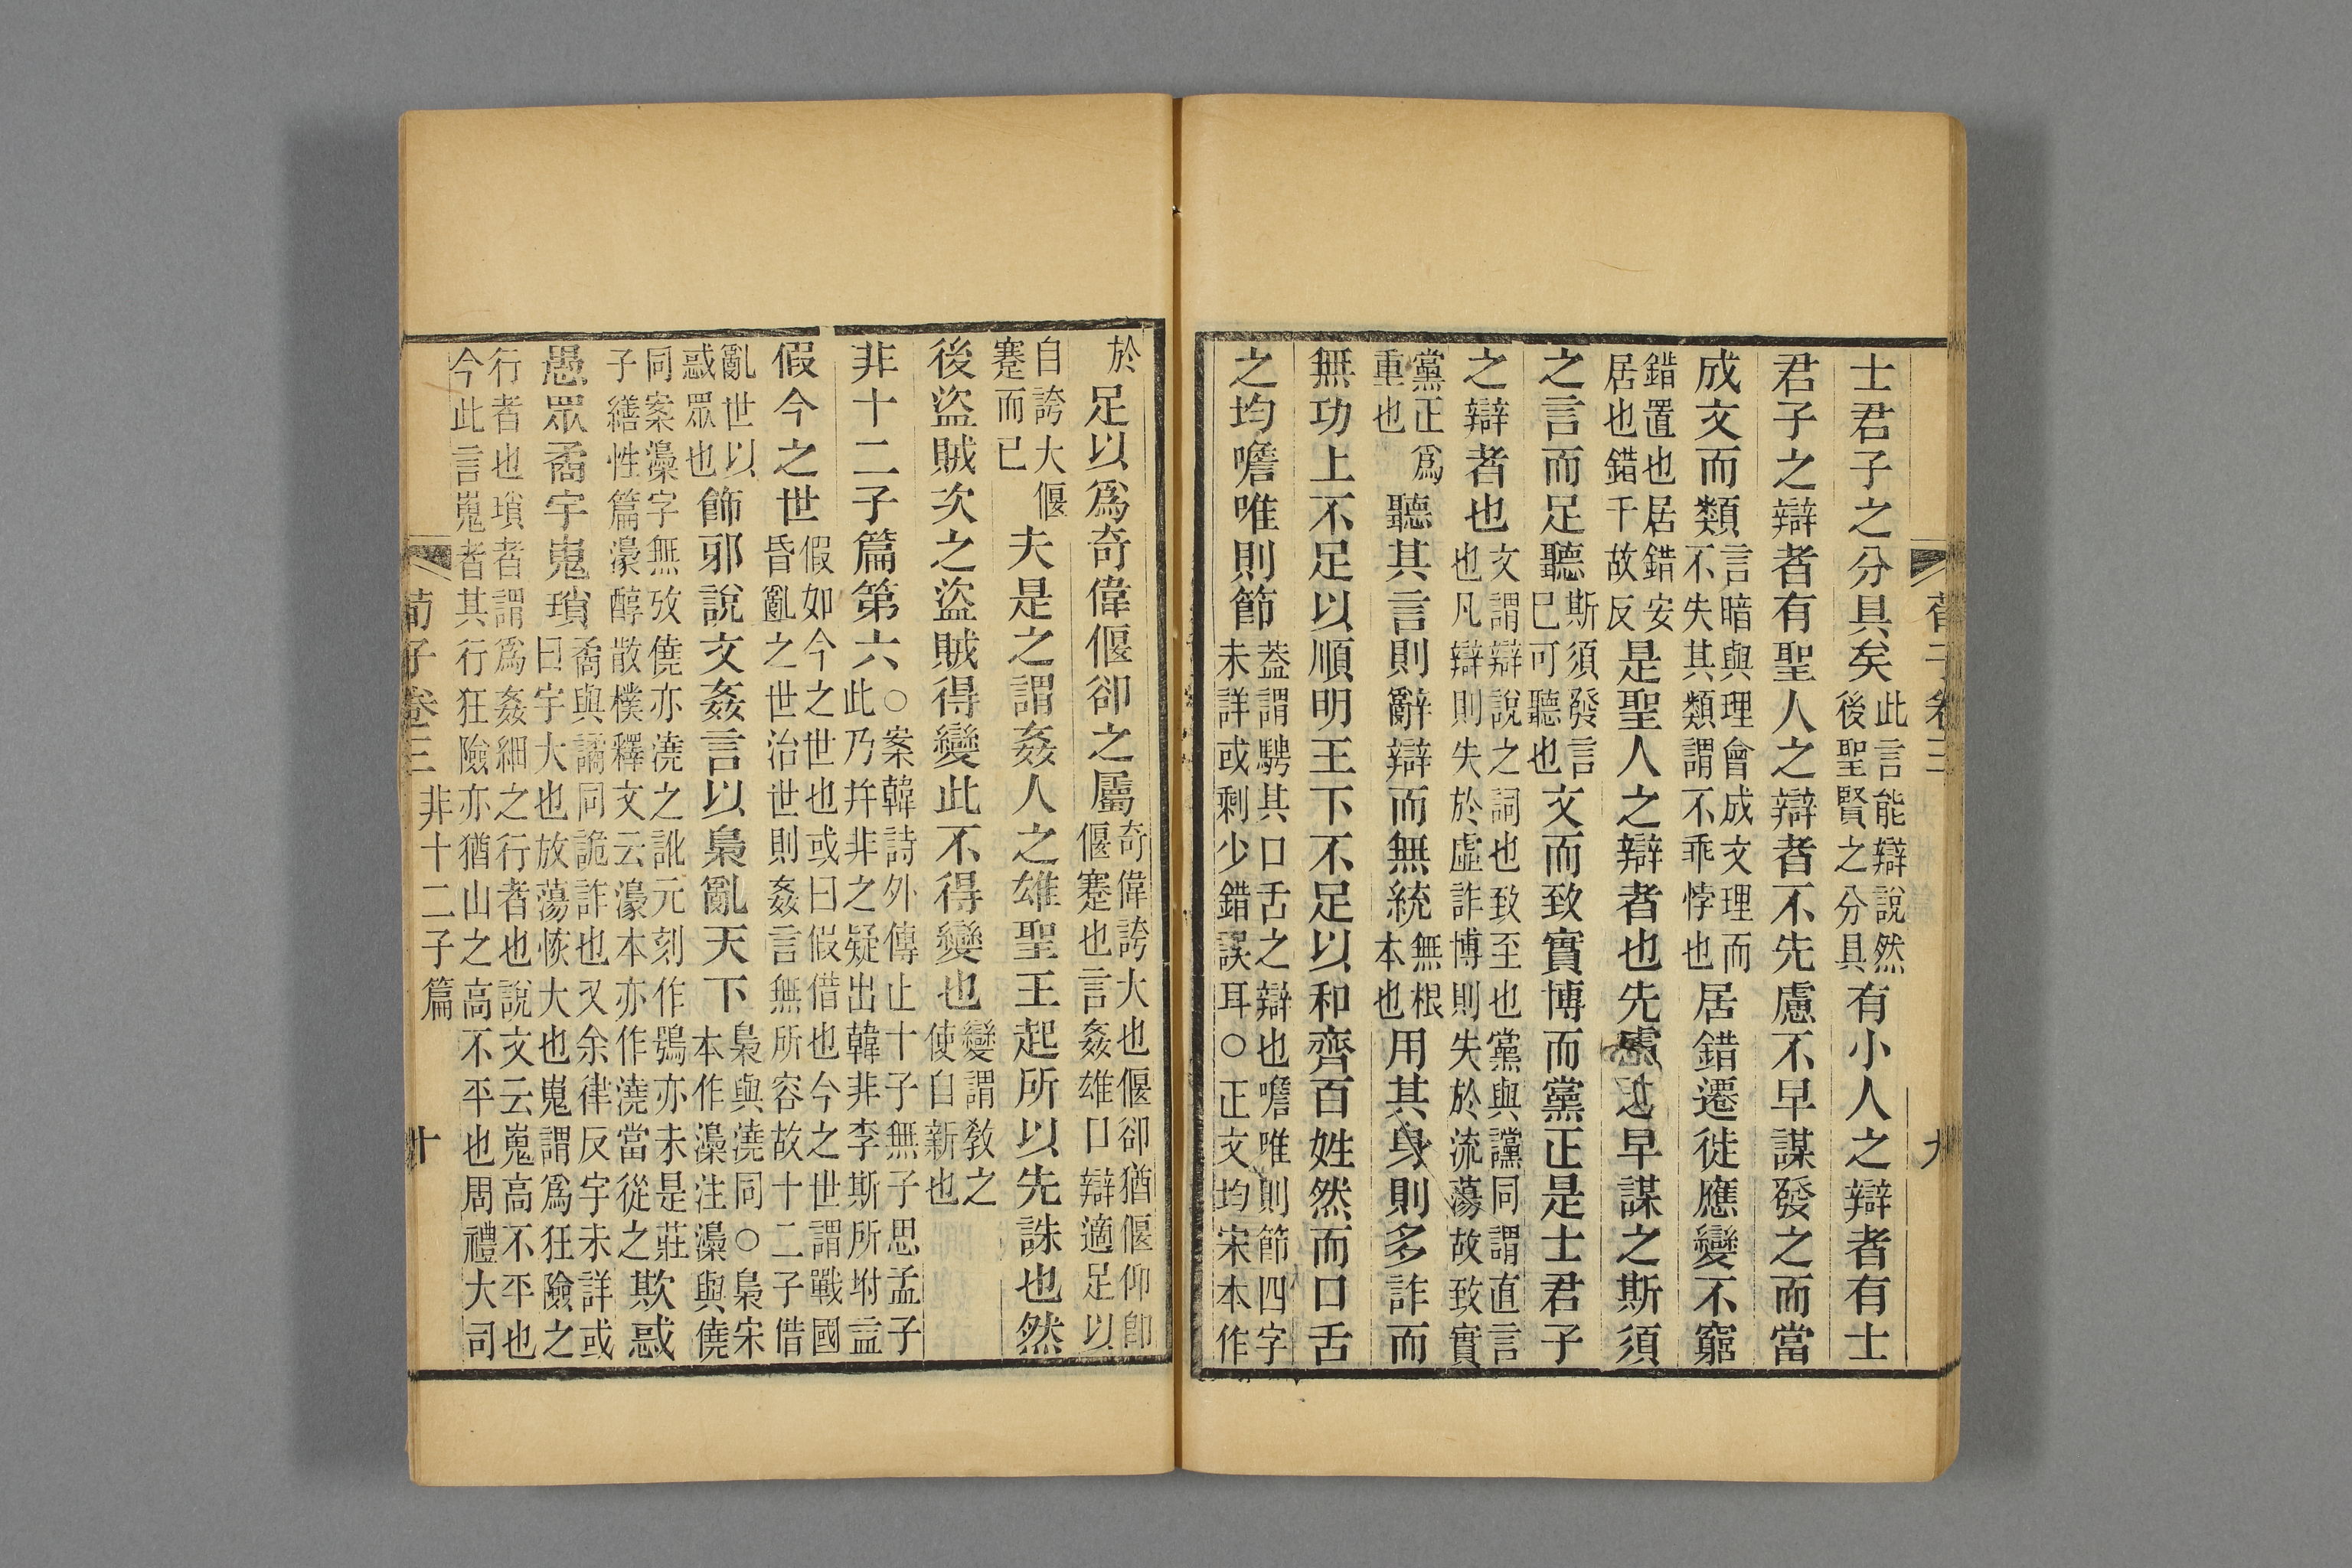 士君子之分具矣此言能辯說然後聖賢之分具有小人之辯者有士
君子之辯者有聖人之辯者不先慮不早謀發之而當
成文而類言暗與理會成文理而不失其類謂不乖悖也居錯遷徙應變不窮
錯置也居錯安居也錯千故反是聖人之辯者也先慮之早謀之斯須
之言而足聽斯須發言已可聽也文而致實博而黨正是士君子
之辯者也文謂辯說之詞也致至也黨與讜同謂直言也凡辯則失於虛詐博則失於流蕩故致實
黨正爲重也聽其言則辭辯而無統無根本也用其身則多詐而
無功上不足以順明王下不足以和齊百姓然而口舌
之均噡唯則節蓋謂騁其口舌之辯也噡唯則節四字未詳或剩少錯誤耳○正文均宋本作
荀子卷三
九
於足以爲奇偉偃卻之屬奇偉誇大也偃卻猶偃仰卽偃蹇也言姦雄口辯適足以
自誇大偃蹇而已夫是之謂姦人之雄聖王起所以先誅也然
後盜賊次之盜賊得變此不得變也變謂教之使自新也
非十二子篇第六○案韓詩外傳止十子無子思孟子此乃幷非之疑出韓非李斯所坿益
假今之世假如今之世也或曰假借也今之世謂戰國昏亂之世治世則姦言無所容故十二子借
亂世以惑眾也飾邪說文姦言以梟亂天下梟與澆同○梟宋本作澡注澡與僥
同案澡字無攷僥亦澆之訛元刻作鴞亦未是莊子繕性篇濠醇散樸釋文云濠本亦作澆當從之欺惑
愚眾矞宇嵬瑣矞與譎同詭詐也又余律反宇未詳或曰宇大也放蕩恢大也嵬謂爲狂險之
行者也瑣者謂爲姦細之行者也說文云嵬高不平也今此言嵬者其行狂險亦猶山之高不平也周禮大司
荀子卷三 非十二子篇
十